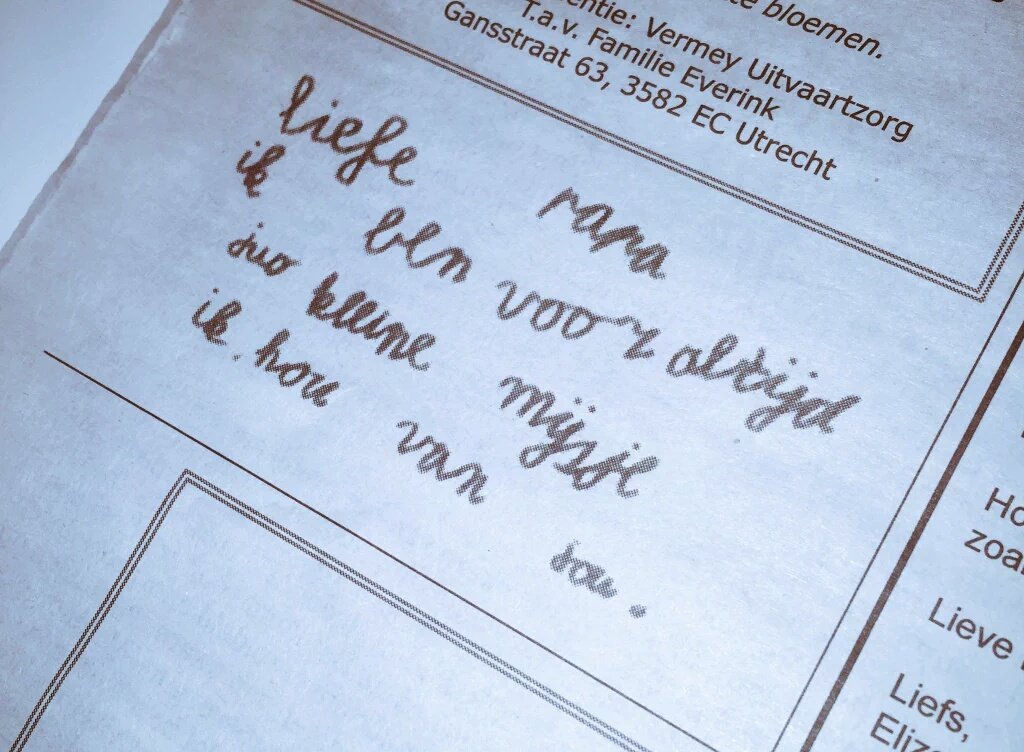 bloemen.
Vermey Uitvaartzorg
T.a.v. Familie Everink
Gansstraat 63, 3582 EC Utrecht
liefe papa
ik ben voor altijd
juo kleine mijsje
ik hou van jou.
Lieve
Liefs,